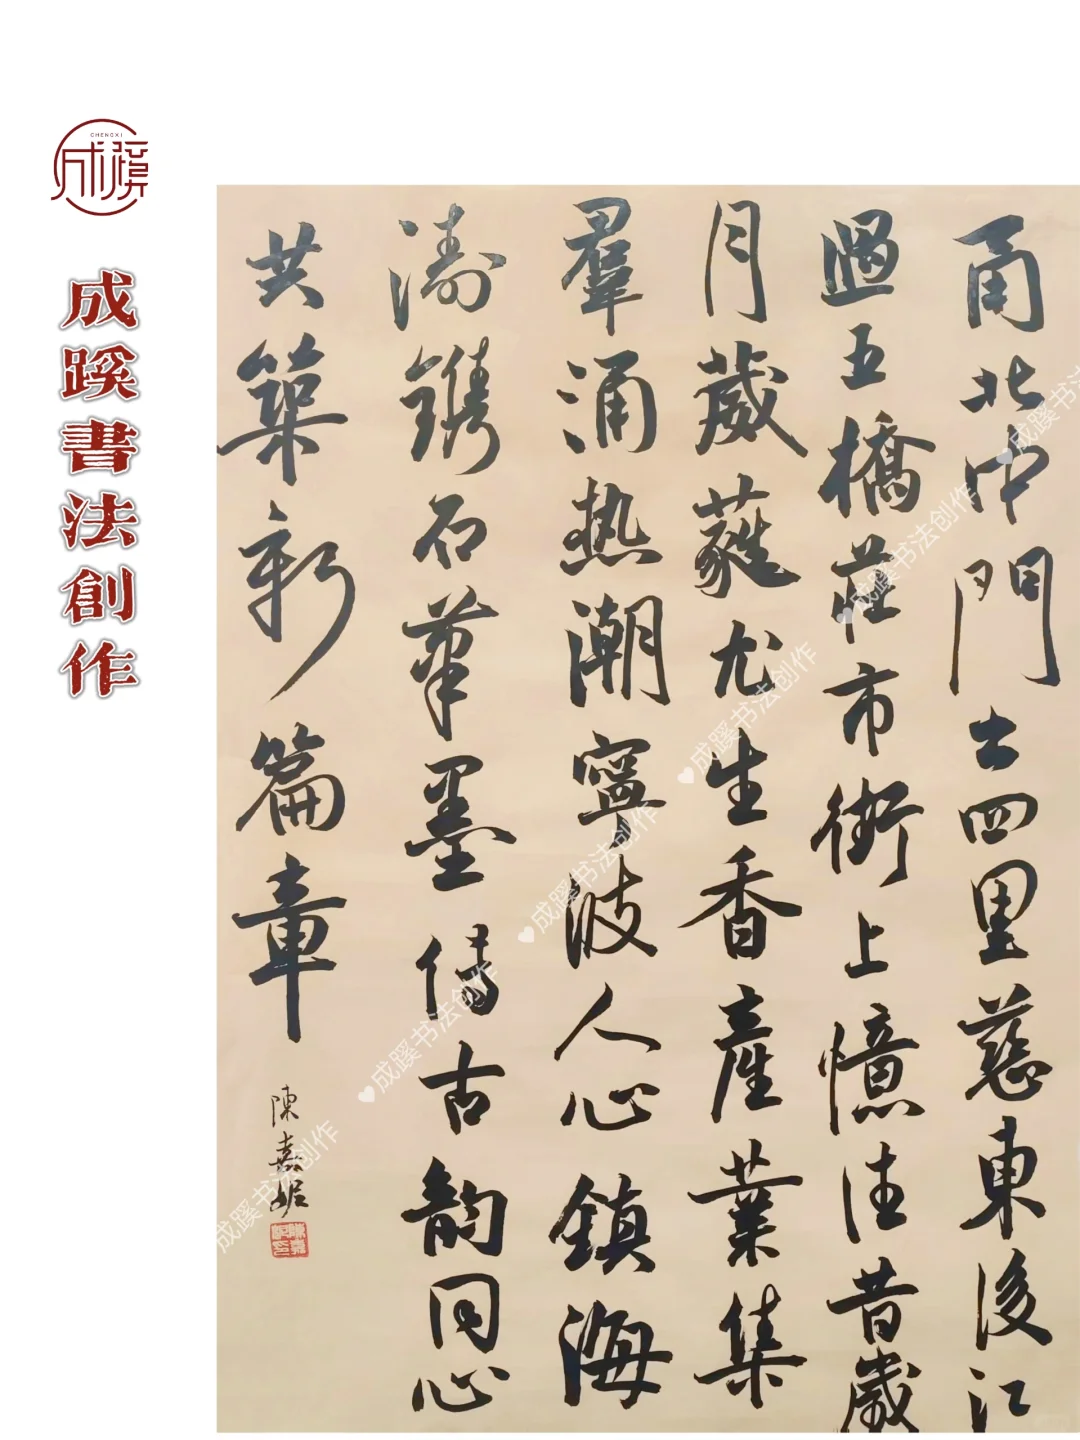 CHENGXI
成蹊
成蹊書法創作
甬北中門士四里慈東後江
過五橋莊市街上憶往昔歲
月葳蕤尤生香產業集
羣涌热潮寧波人心鎮海
濤鐫石筆墨傳古韵同心
共築新篇章
陳嘉妮
成蹊书法创作
成蹊书法创作
成蹊书法创作
成蹊书法创作
成蹊书法创作
成蹊书法创作